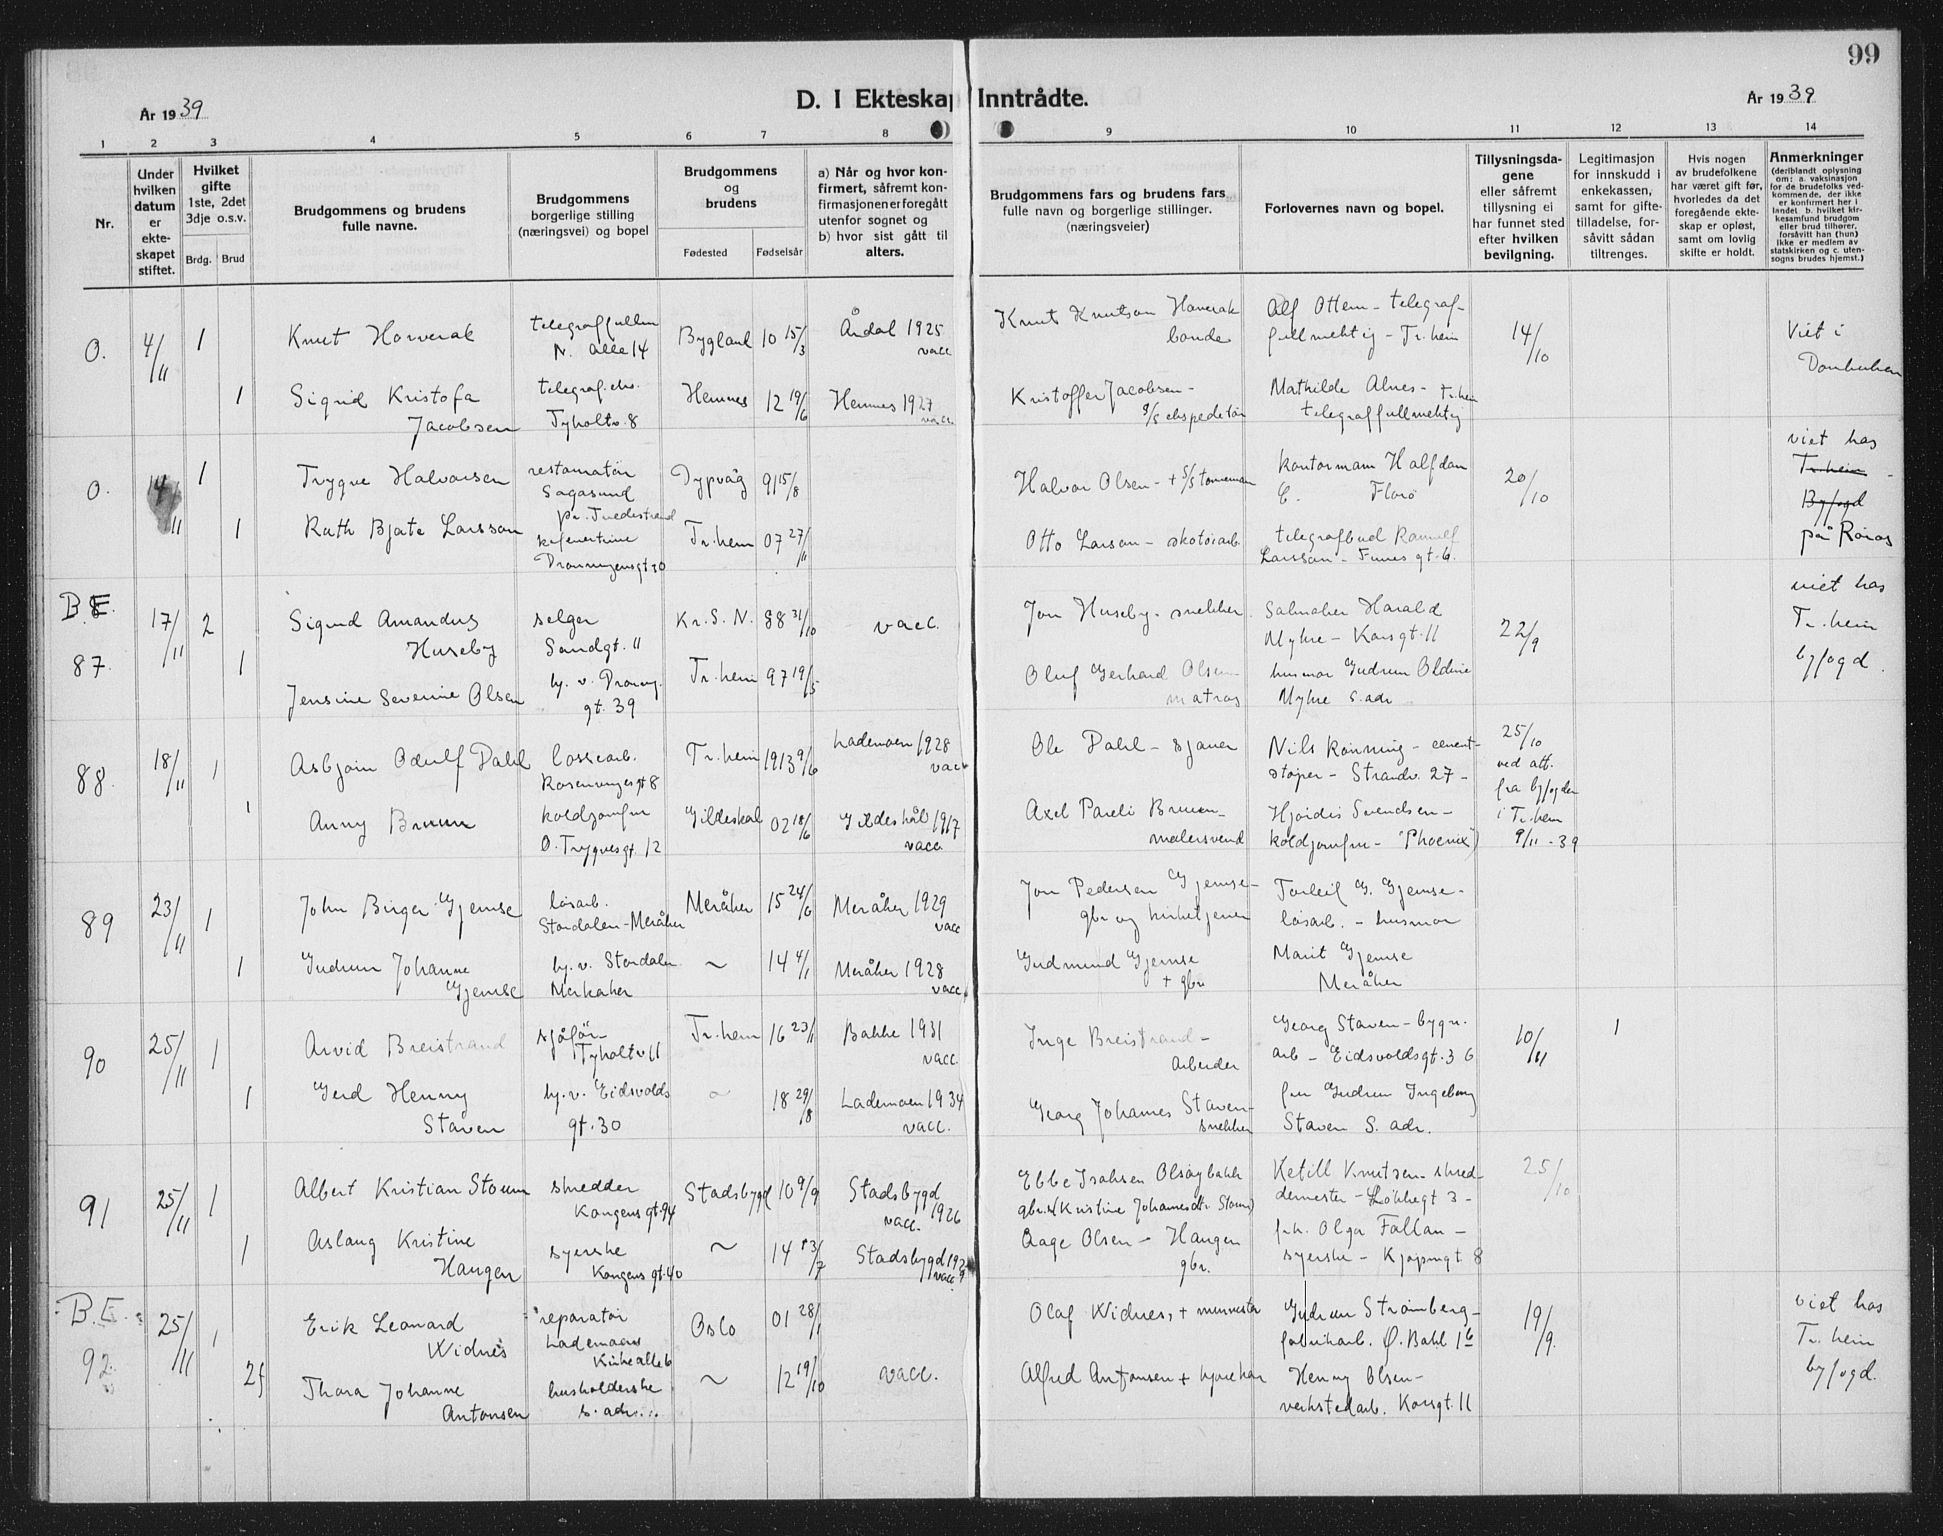 99
D. I Ekteskap Inntrådte.
År 1939
År 1939
1 2 3 4 5 6 7 8 9 10 11 12 13 14
Nr.
Under hvilken datum er ekteskapet stiftet.
Hvilket gifte 1ste, 2det 3dje o.s.v.
Brdg. Brud
Brudgommens og brudens fulle navne.
Brudgommens borgerlige stilling (næringsvei) og bopel
Brudgommens og brudens
Fødested Fødselsår
a) Når og hvor konfirmert, såfremt konfirmasjonen er foregått utenfor sognet og b) hvor sist gått til alters.
Brudgommens fars og brudens fars fulle navn og borgerlige stillinger. (næringsveier)
Forlovernes navn og bopel.
Tillysningsdagene eller såfremt tillysning ei har funnet sted efter hvilken bevilgning.
Legitimasjon for innskudd i enkekassen, samt for giftetilladelse, forsåvitt sådan tiltrenges.
Hvis nogen av brudefolkene har været gift før, hvorledes da det foregående ekteskap er opløst, samt om lovlig skifte er holdt.
Anmerkninger (deriblandt oplysning om: a. vaksinasjon for de brudefolks vedkommende, der ikke er konfirmert her i landet b. hvilket kirkesamfund brudgom eller brud tilhører, forsåvitt han (hun) ikke er medlem av statskirken og c. utensogns brudes hjemst.)
O. 4/11 1 Knut Haverak telegraffullm N. alle 14 Bygland 10 15/3 Årdal 1925 vacc Knut Knutson Haverak bonde Alf Ottem - telegraffullmektig - Tr.heim 14/10 Viet i Domkirken
1 Sigrid Kristofa Jacobsen telegraf. eks. Tyholtv. 8 Hemnes 12 19/6 Hemnes 1927 vacc. Kristoffer Jacobsen - s/s ekspeditør Mathilde Alnes - Tr.heim telegraffullmektig
O. 14/11 1 Trygve Halvorsen restauratør Sagesund pr. Tvedestrand Dypvåg 91 15/8 Halvor Olsen - + s/s tømmerman kontormann Halfdan C. Florø 20/10 viet hos Tr.heim Byfogd på Røros
1 Ruth Bjate Larsson Dronningensgt 30 Tr.heim 07 27/11 Otto Larson - skotøiarb. telegrafbud Larsson - gt. 6.
B.E. 87. 17/11 2 Sigurd Amandus Huseby selger Sandgt. 11 Kr. S. N. 88 31/10 vacc. Jon Huseby - snekker Salmaker Harald Myhre - Korsgt. 11 22/9 viet hos Tr.heim byfogd.
1 Jensine Severine Olsen hj. v. Dronng. gt. 39 Tr.heim 97 19/5 Oluf Gerhard Olsen - matros husmor Gudrun Oldine Myhre s. adr
88. 18/11 1 Asbjørn Odulf Dahl lossearb. gt 8 Tr.heim 1913 9/6 Lademoen 1928 vacc Ole Dahl - sjauer Nils Rønning - cementstøper - Strandv. 27 - 25/10 ved att. fra byfogden i Tr.heim 9/11 - 39
1 Anny Bruun koldjomfru O. Trygvesgt. 12 Gildeskål 02 18/6 Gildeskål 1917 vacc. Axel Pareli Bruun - malersvend Hjørdis Svendsen - koldjomfru - "Phoenix"
89 23/11 1 John Birger Gjemse løsarb. Stordalen - Meråker Meråker 15 24/6 Meråker 1929 vacc Jon Pedersen Gjemse - gbr og kirketjener Torleif G. Gjemse - løsarb. - husmor
1 Gudrun Johanne Gjemse hj. v. Stordalen Meråker ~ 14 4/1 Meråker 1928 vacc. Gudmund Gjemse + gbr Marit Gjemse Meråker
90 25/11 1 Arvid Breistrand sjåfør Tyholtv 11 Tr.heim 16 23/1 Bakke 1931 vacc. Inge Breistrand - Arbeider Georg Staven - bygn. arb - Eidsvoldsgt. 36 10/11 1
1 Gerd Henny Staven hj. v. Eidsvolds gt. 30 ~ 18 29/8 Lademoen 1934 vacc. Georg Johannes Staven - snekker fru Gudrun Ingeborg Staven S. adr.
91 25/11 1 Albert Kristian Stoum skredder Kongens gt. 94 Stadsbygd 10 9/9 Stadsbygd 1926 vacc. Ebbe Isaksen Olsøybakk gbr. (Kristine Johannesdtr Stoum) Ketill Knutsen - skreddermester - gt 3 - 25/10
1 Aslaug Kristine Haugen syerske Kongens gt. 40 ~ 14 13/7 Stadsbygd 1929 vacc. Aage Olsen - Haugen gbr. frk. Olga Fallan - syerske - Kjøpmgt 8
B.E. 92. 25/11 1 Erik Leonard Widnes reparatør Lademoens Kirkealle 6 Oslo 01 28/1 Olaf Widnes, + Gudrun Strømberg - fabrikarb. Ø. Bakl 1b 19/9. viet hos Tr.heim byfogd.
2f Thora Johanne Antonsen husholderske s. adr. ~ 12 19/10 vacc. Alfred Antonsen + Henny Olsen - verkstedarb. Korsgt. 11